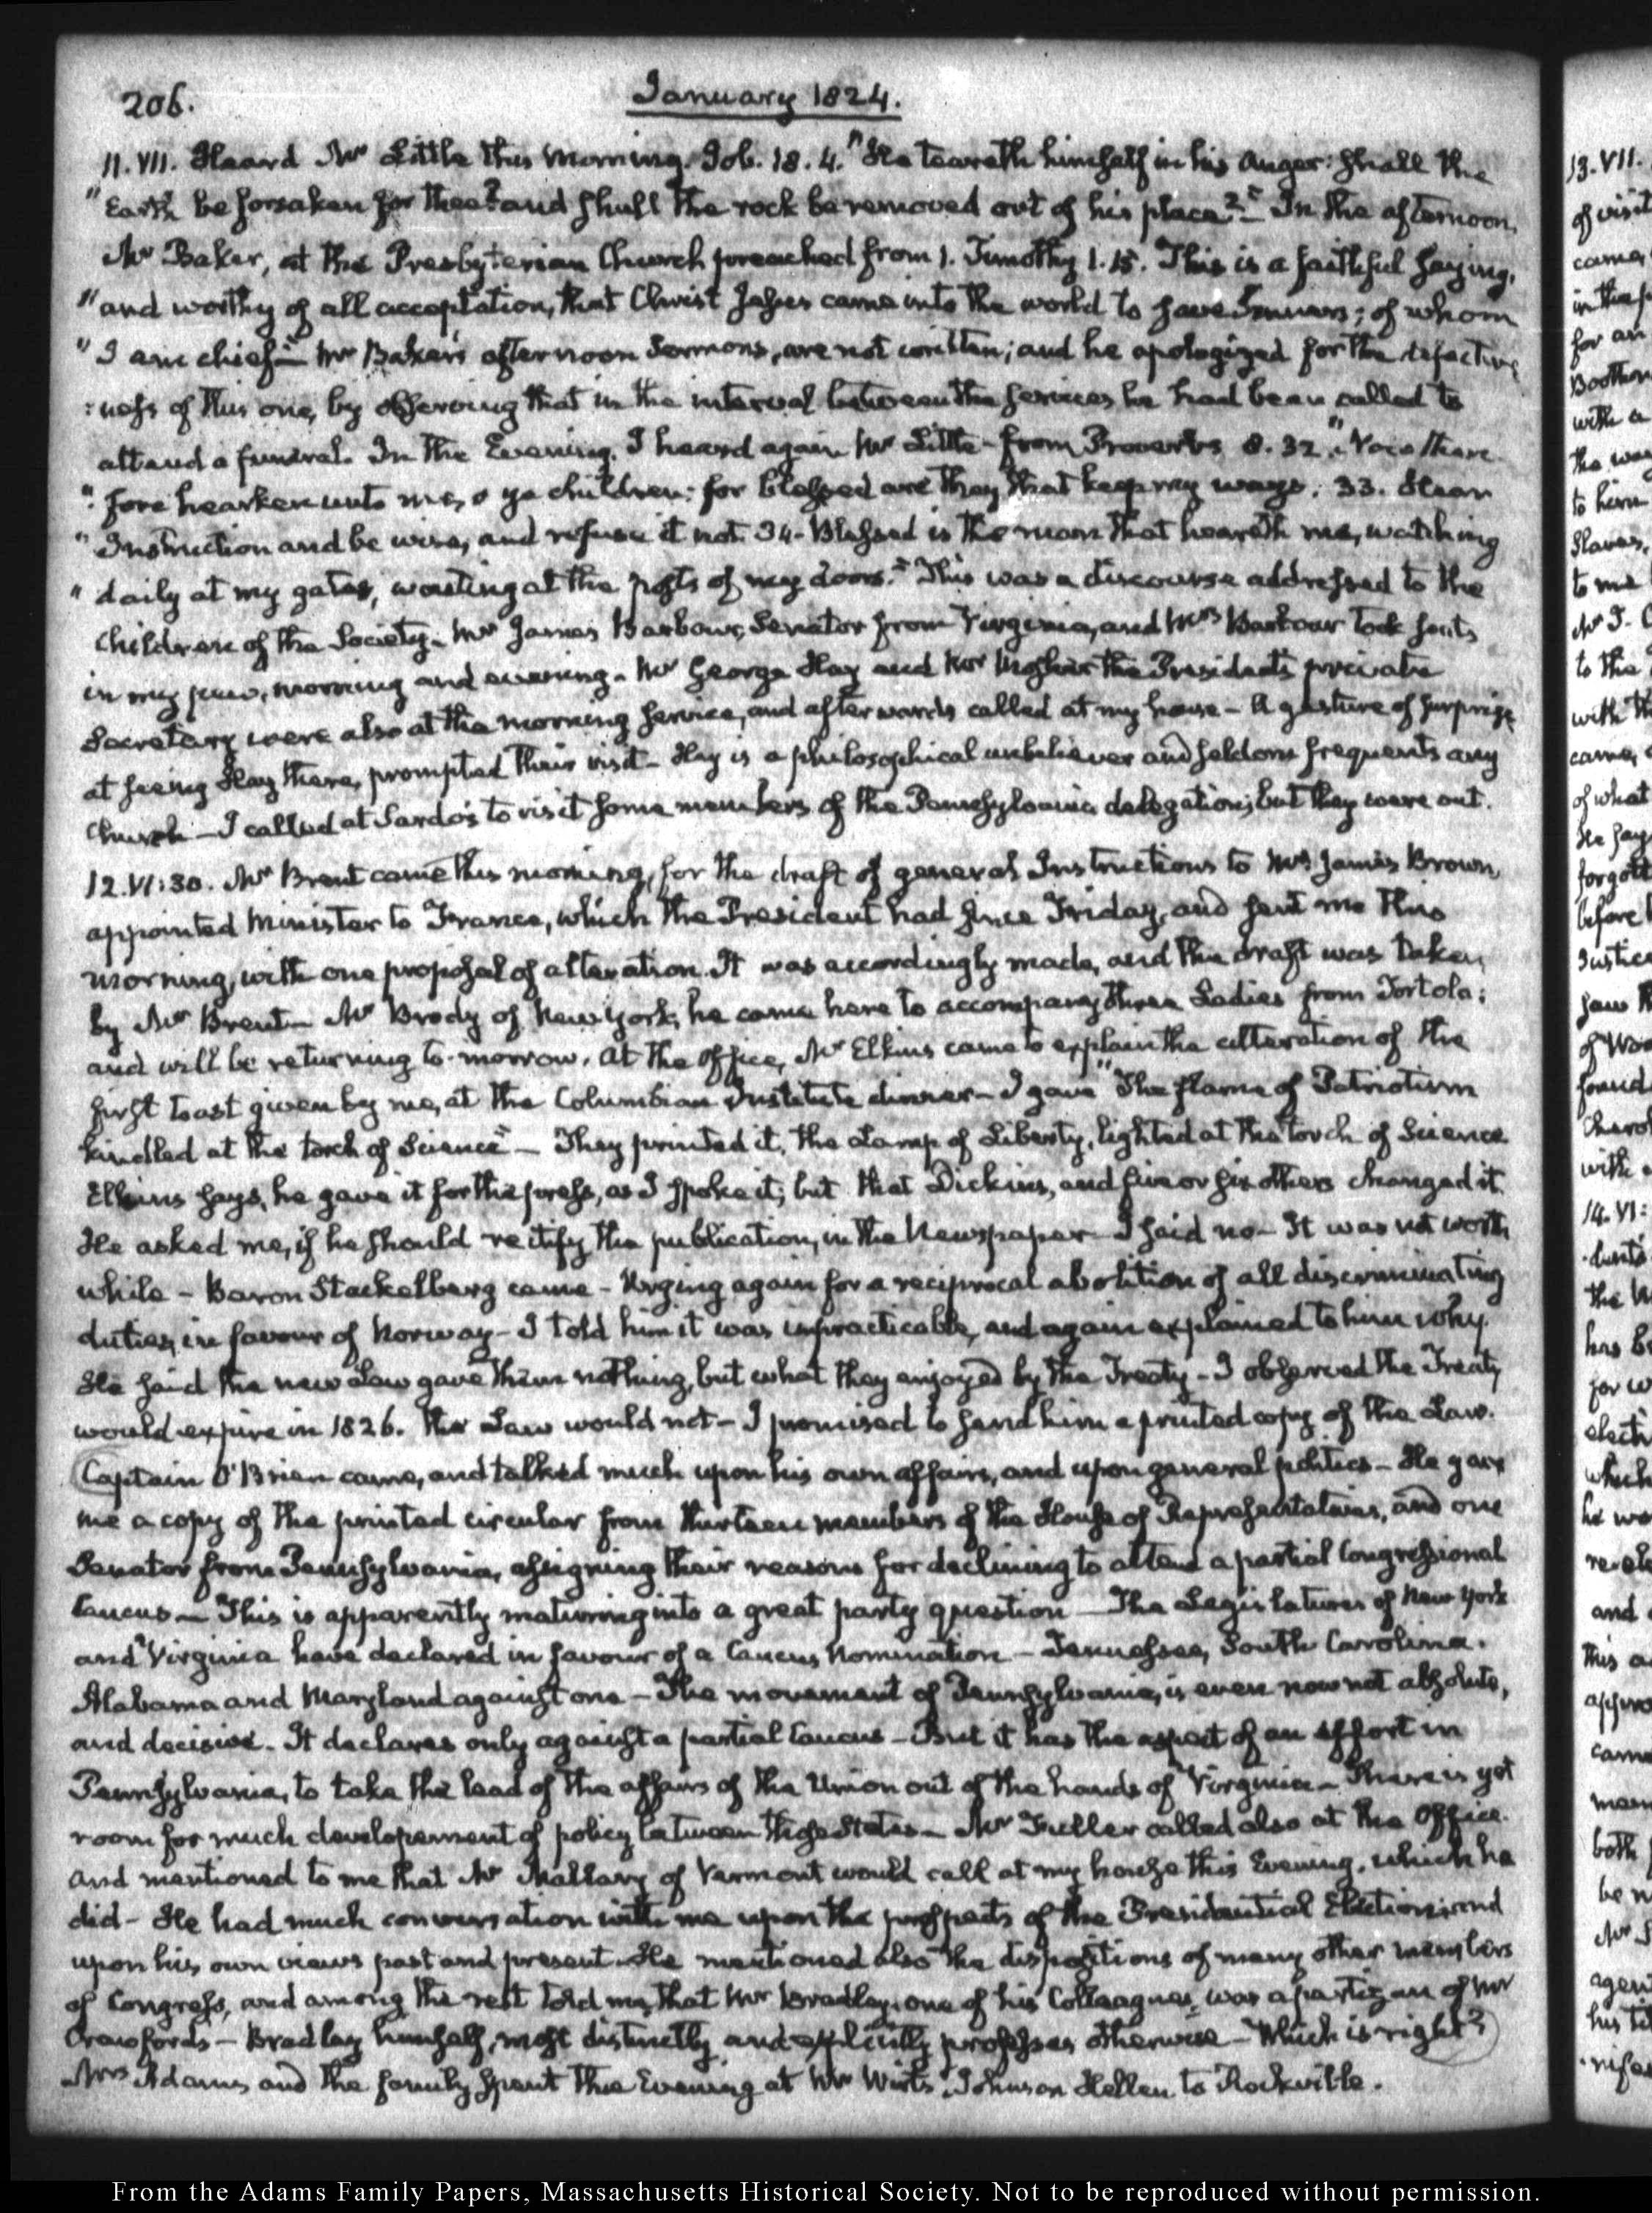 206.
January 1824.
11. VII. Heard Mr. Little this Morning. Job. 18. 4. "He teareth himself in his Anger: shall the
"Earth be forsaken for thee? and shall the rock be removed out of his place?" In the afternoon,
Mr Baker, at the Presbyterian Church preached from 1. Timothy 1. 15. This is a faithful saying,
"and worthy of all acceptation, that Christ Jesus came into the world to save Sinners; of whom
"I am chief"— Mr Baker's afternoon Sermons, are not written; and he apologized for the defective
:ness of this one, by observing that in the interval between the services he had been called to
attend a funeral. In the Evening, I heard again Mr Little— from Proverbs 8. 32. "Now there
": fore hearken unto me, o ye children; for blessed are they that keep my ways. 33. Hear
"Instruction and be wise, and refuse it not. 34. Blessed is the man that heareth me, watching
"daily at my gates, waiting at the posts of my doors." This was a discourse addressed to the
Children of the Society. Mr James Barbour, Senator from Virginia, and Mrs Barbour took seats
in my pew, morning and evening. Mr George Hay and the President's private
Secretary were also at the morning service, and afterwards called at my house— A gesture of surprize
at seeing Hay there, prompted their visit— Hay is a philosophical unbeliever and seldom frequents any
Church— I called at Sardo's to visit some members of the Pennsylvania delegation; but they were out.
12. VI:30. Mr Brent came this morning, for the draft of general Instructions to Mr James Brown,
appointed Minister to France, which the President had since Friday, and sent me this
morning, with one proposal of alteration. It was accordingly made, and the draft was taken
by Mr Brent— Mr Brody of New York, he came here to accompany three Ladies from Tortola;
and will be returning to-morrow. At the Office, Mr Elkins came to explain the alteration of the
first toast given by me, at the Columbian Institute dinner— I gave "The flame of Patriotism
kindled at the torch of Science"— They printed it, the Lamp of Liberty, lighted at the torch of Science
Elkins says, he gave it for the press, as I spoke it; but that Dickins, and five or six others changed it.
He asked me, if he should rectify the publication, in the Newspaper— I said no— It was not worth
while— Baron Stackelberg came— Urging again for a reciprocal abolition of all discriminating
duties, in favour of Norway— I told him it was impracticable, and again explained to him why.
He said the new Law gave them nothing, but what they enjoyed by the Treaty— I observed the Treaty
would expire in 1826. the Law would not— I promised to send him a printed copy of the Law.
Captain O'Brien came, and talked much upon his own affairs, and upon general politics— He gave
me a copy of the printed circular from thirteen members of the House of Representatives, and one
Senator from Pennsylvania, assigning their reasons for declining to attend a partial Congressional
Caucus— This is apparently maturing into a great party question— The Legislatures of New York
and Virginia have declared in favour of a Caucus Nomination— Tennessee, South Carolina.
Alabama and Maryland against one— The movement of Pennsylvania, is even now not absolute,
and decisive. It declares only against a partial Caucus— But it has the aspect of an effort in
Pennsylvania, to take the lead of the affairs of the Union out of the hands of Virginia— There is yet
room for much developement of policy between those States— Mr Fuller called also at the Office.
and mentioned to me that Mr Mallary of Vermont would call at my house this Evening, which he
did— He had much conversation with me upon the prospects of the Presidential Election; and
upon his own views past and present. He mentioned also the dispositions of many other members
of Congress, and among the rest told me, that Mr Bradley, one of his Colleagues, was a partizan of Mr
Crawford's— Bradley himself, most distinctly and explicitly professes otherwise— Which is right?
Mrs Adams and the family spent the Evening at Mr Wirt's. Johnson Hellen to Rockville.
From the Adams Family Papers, Massachusetts Historical Society. Not to be reproduced without permission.